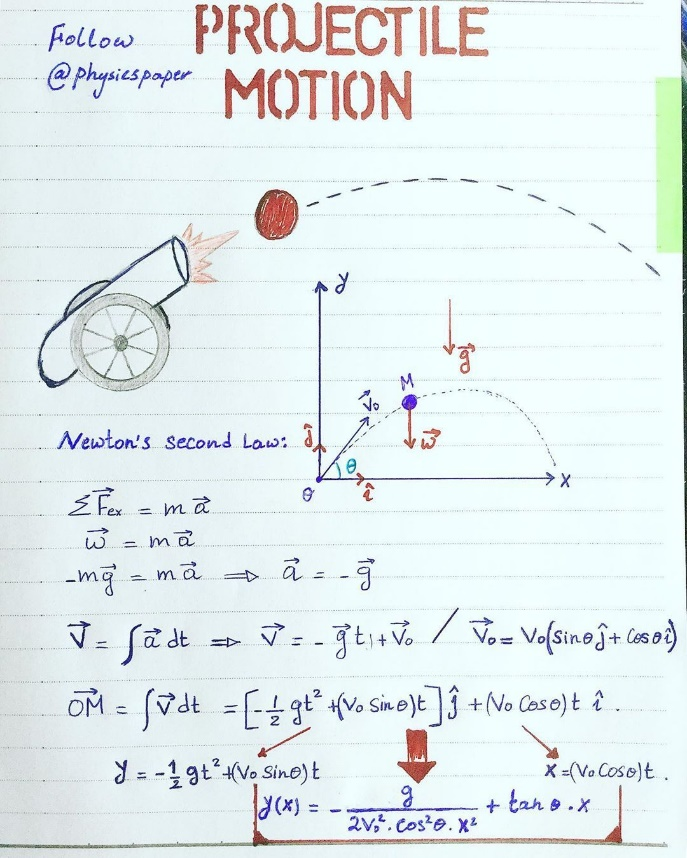 Follow
@physicspaper
PROJECTILE
MOTION
y
g⃗
M
V⃗₀
Newton's second Law:
ĵ
w⃗
θ
O
î
x
ΣF⃗ₑₓ = m a⃗
w⃗ = m a⃗
-m g⃗ = m a⃗ ⇒ a⃗ = - g⃗
V⃗ = ∫ a⃗ dt ⇒ V⃗ = - g⃗ t + V⃗₀ / V⃗₀ = V₀(sinθ ĵ + cosθ î)
OM⃗ = ∫ V⃗ dt = [-1/2 gt² + (V₀ Sinθ)t] ĵ + (V₀ Cosθ) t î .
y = -1/2 gt² + (V₀ Sinθ) t
x = (V₀ Cosθ) t .
y(x) = - g / 2V₀² . Cos²θ . x² + tan θ . x